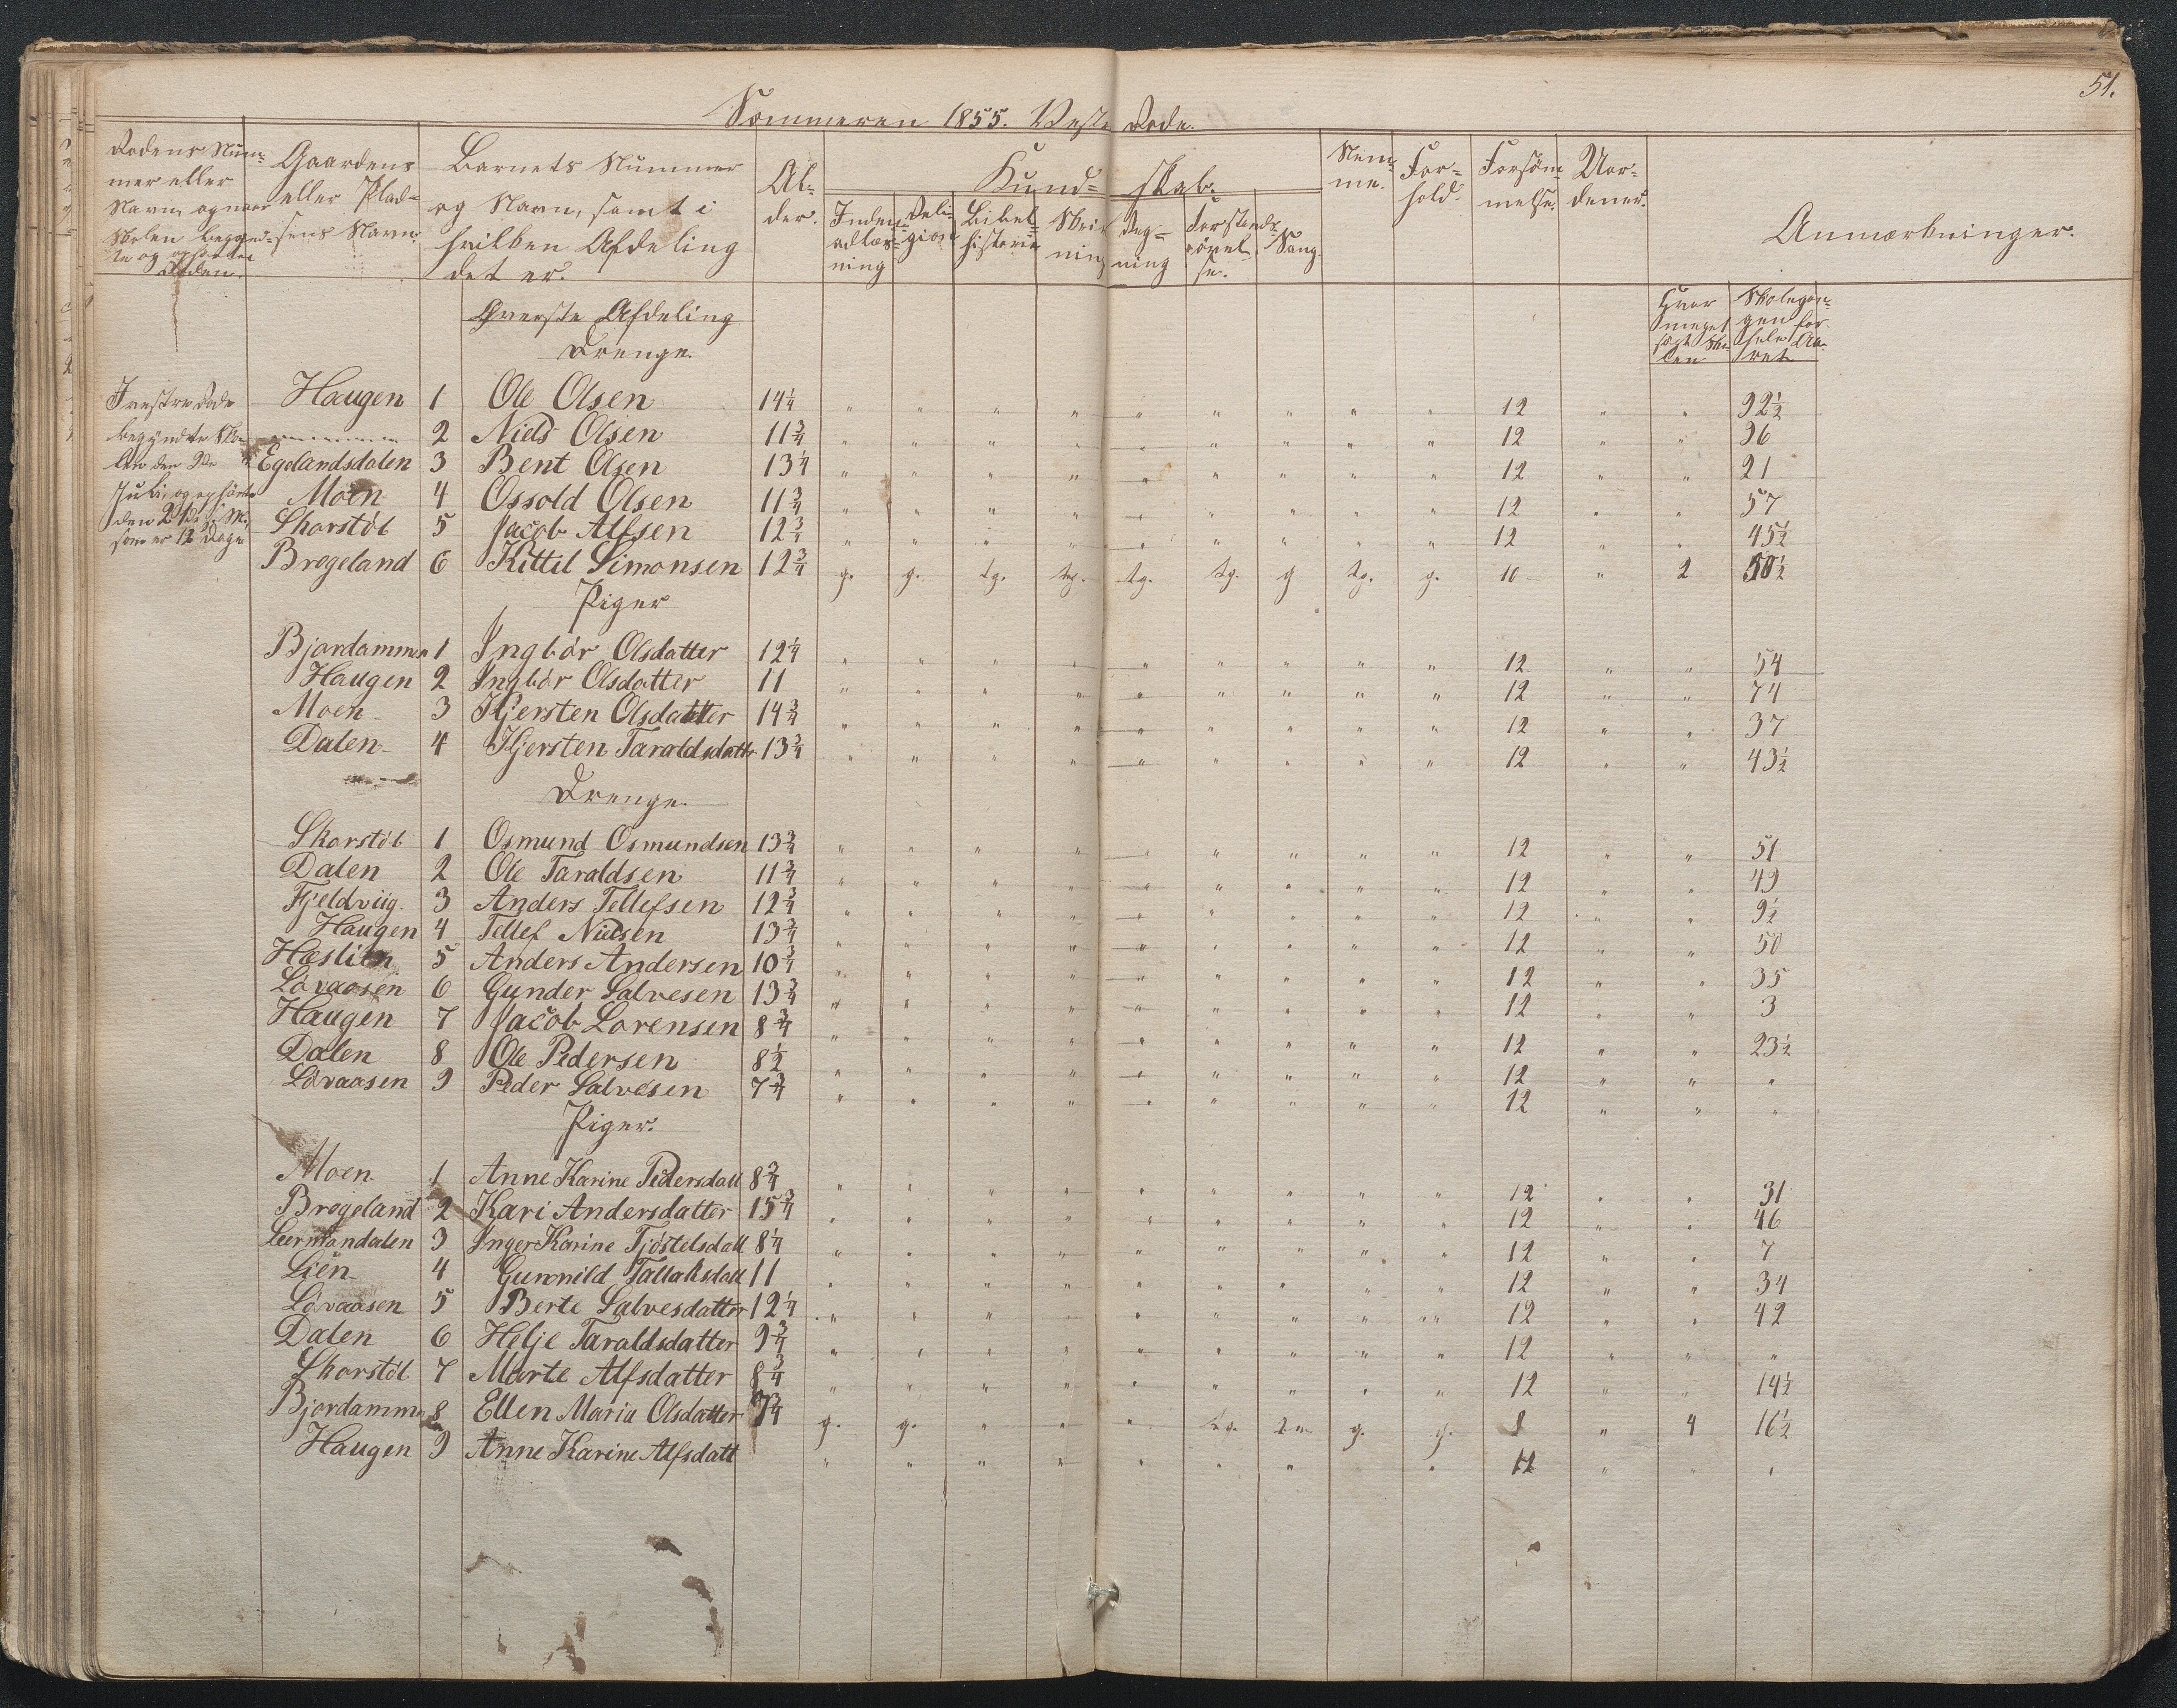 51.
Sommeren 1855. Vestre Rode.
Rodens Num= mer eller Navn, og naar Skolen begynd= te og ophørte Roden. | Gaardens eller Plad= sens Navn. | Barnets Nummer og Navn, samt i hvilken Afdeling det er. | Al= der. | Kund= skab. | Nem= me. | For= hold. | Forsøm= melse. | Uor= dener. | Anmærkninger.
Inden= adlæs= ning | Reli= gion | Bibel= historie | Skriv ning | Reg= ning | Forstands øvel= se. | Sang.
Hvor meget søgt Sko= len | Skolegan= gen for hele Aa= ret
Øverste Afdeling
Drenge.
I vestre Rode Haugen 1 Ole Olsen 14 1/4 " " " " " " " " " 12 " " 92 1/2
begyndte Sko= " 2 Niels Olsen 11 3/4 " " " " " " " " " 12 " " 96
len den 9de Egelandsdalen 3 Bent Olsen 13 1/4 " " " " " " " " " 12 " " 21
Juli, og ophørte Moen 4 Ossold Olsen 11 3/4 " " " " " " " " " 12 " " 57
den 21de s. M., Skorstøl 5 Jacob Alfsen 12 3/4 " " " " " " " " " 12 " " 45 1/2
som er 12 Dage Brogeland 6 Kittil Simonsen 12 3/4 g. g. tg. tg. tg. tg. g tg. g. 10 " 2 50 1/2
Piger
Bjordammen 1 Ingbør Olsdatter 12 1/4 " " " " " " " " " 12 " " 54
Haugen 2 Ingbør Olsdatter 11 " " " " " " " " " 12 " " 74
Moen 3 Kjersten Olsdatter 14 3/4 " " " " " " " " " 12 " " 37
Dalen 4 Kjersten Taraldsdatter 13 3/4 " " " " " " " " " 12 " " 43 1/2
Drenge.
Skorstøl 1 Osmund Osmundsen 13 3/4 " " " " " " " " " 12 " " 51
Dalen 2 Ole Taraldsen 11 3/4 " " " " " " " " " 12 " " 49
Fjeldviig. 3 Anders Tellefsen 12 3/4 " " " " " " " " " 12 " " 9 1/2
Haugen 4 Tellef Nielsen 13 3/4 " " " " " " " " " 12 " " 50
Hæslien 5 Anders Andersen 10 3/4 " " " " " " " " " 12 " " 35
Løvaasen 6 Gunder Salvesen 13 3/4 " " " " " " " " " 12 " " 3
Haugen 7 Jacob Lorensen 8 3/4 " " " " " " " " " 12 " " 23 1/2
Dalen 8 Ole Pedersen 8 1/2 " " " " " " " " " 12 " " "
Løvaasen 9 Peder Salvesen 7 3/4 " " " " " " " " " 12 " " "
Piger.
Moen 1 Anne Karine Pedersdatt 8 3/4 " " " " " " " " " 12 " " 31
Brogeland 2 Kari Andersdatter 15 3/4 " " " " " " " " " 12 " " 46
Leermondalen 3 Inger Karine Tjøstelsdatt 8 1/4 " " " " " " " " " 12 " " 7
Lien 4 Gunnild Tallaksdatt 11 " " " " " " " " " 12 " " 34
Løvaasen 5 Berte Salvesdatter 12 1/4 " " " " " " " " " 12 " " 42
Dalen 6 Helje Taraldsdatter 9 3/4 " " " " " " " " " 12 " " "
Skorstøl 7 Marte Alfsdatter 8 3/4 " " " " " " " " " 12 " " 14 1/2
Bjordammen 8 Ellen Maria Olsdatter 7 3/4 g. g. " " " tg. g. g. 8 " 4 16 1/2
Haugen 9 Anne Karine Alfsdatt " " " " " " " " 12 " " "